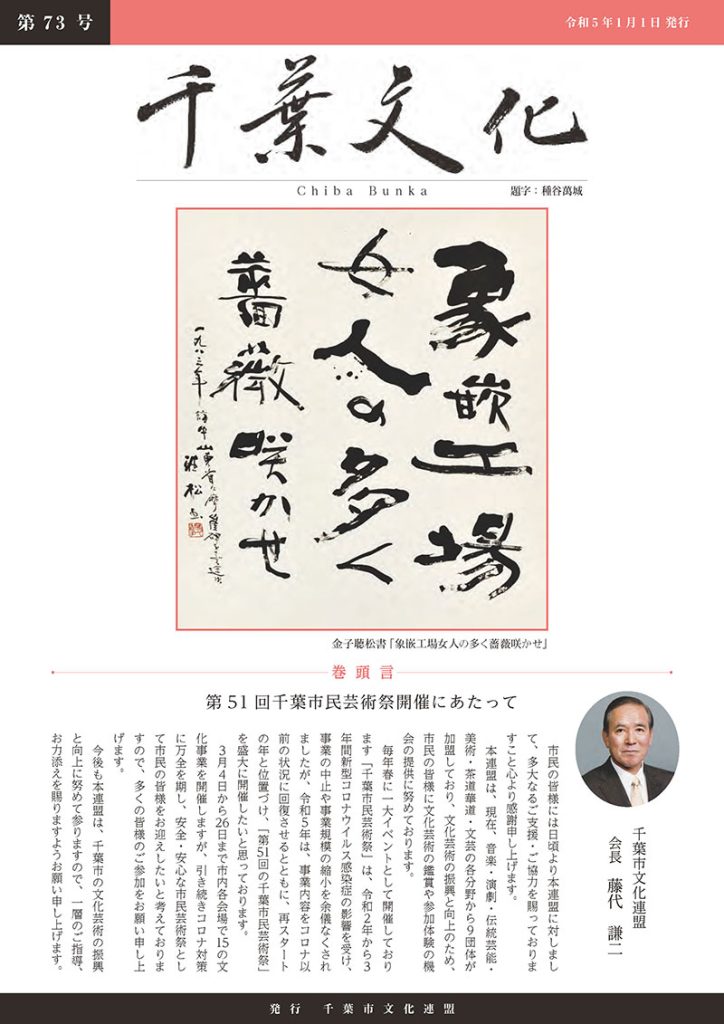 第 73 号
令和5年1月1日 発行
千葉文化
Chiba Bunka
題字：種谷萬城
象嵌工場
女人の多く
薔薇咲かせ
金子聴松書「象嵌工場女人の多く薔薇咲かせ」
巻頭言
第51回千葉市民芸術祭開催にあたって
千葉市文化連盟
会長　藤代　謙二
市民の皆様には日頃より本連盟に対しまし
て、多大なるご支援・ご協力を賜っておりま
すこと心より感謝申し上げます。
本連盟は、現在、音楽・演劇・伝統芸能・
美術・茶道華道・文芸の各分野から9団体が
加盟しており、文化芸術の振興と向上のため、
市民の皆様に文化芸術の鑑賞や参加体験の機
会の提供に努めております。
毎年春に一大イベントとして開催しており
ます「千葉市民芸術祭」は、令和2年から3
年間新型コロナウイルス感染症の影響を受け、
事業の中止や事業規模の縮小を余儀なくされ
ましたが、令和5年は、事業内容をコロナ以
前の状況に回復させるとともに、再スタート
の年と位置づけ、「第51回の千葉市民芸術祭」
を盛大に開催したいと思っております。
3月4日から26日まで市内各会場で15の文
化事業を開催しますが、引き続きコロナ対策
に万全を期し、安全・安心な市民芸術祭とし
て市民の皆様をお迎えしたいと考えておりま
すので、多くの皆様のご参加をお願い申し上
げます。
今後も本連盟は、千葉市の文化芸術の振興
と向上に努めて参りますので、一層のご指導、
お力添えを賜りますようお願い申し上げます。
発行　千葉市文化連盟